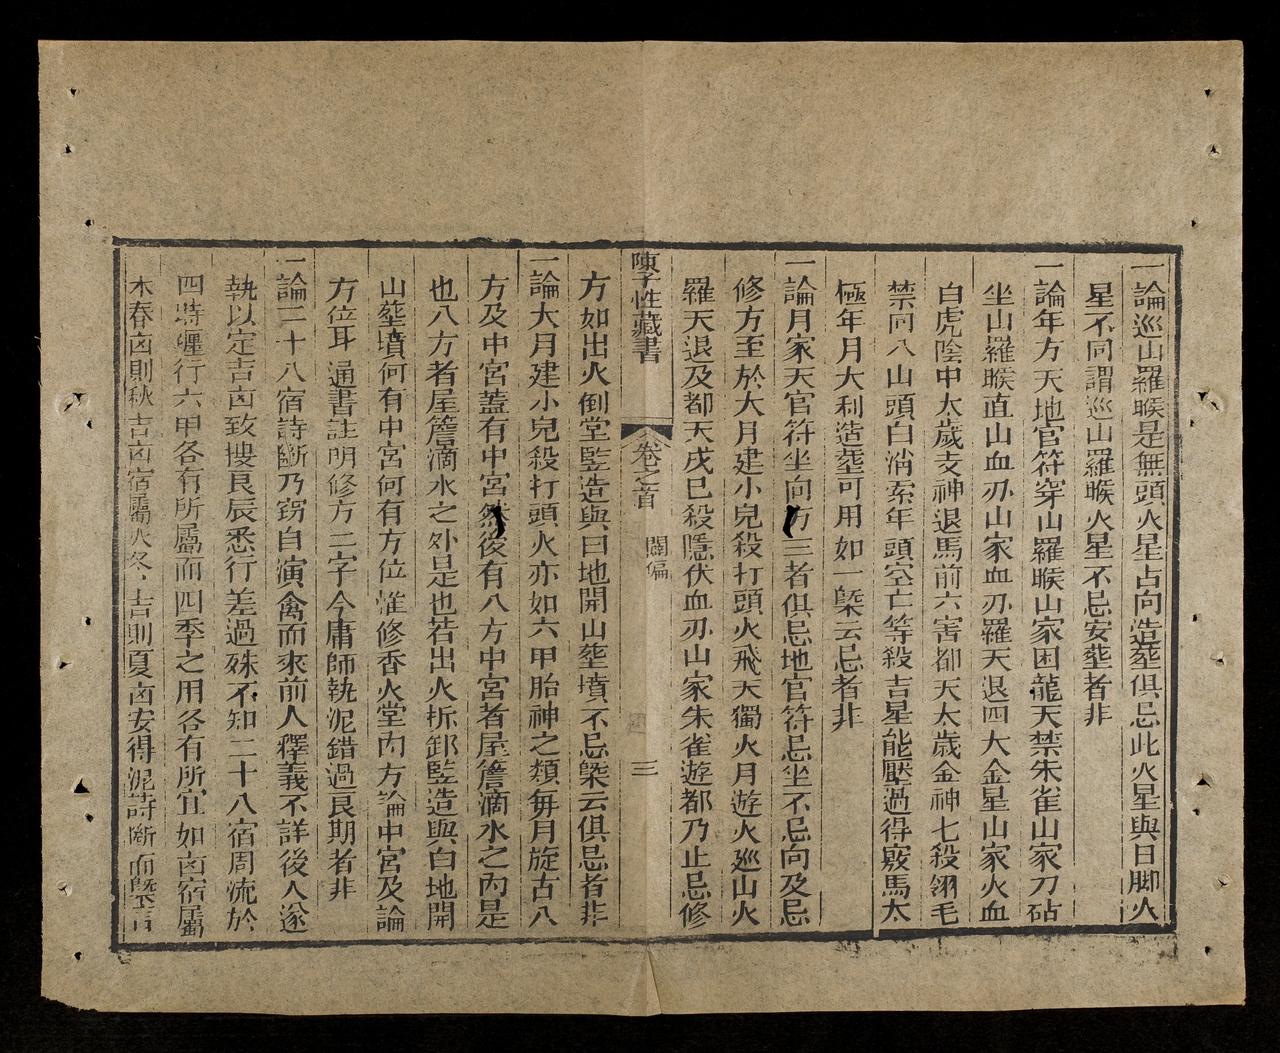 一論巡山羅睺是無頭火星占向造塟俱忌此火星與日脚火
星不同謂巡山羅睺火星不忌安塟者非
一論年方天地官符穿山羅睺山家困龍天禁朱雀山家刀砧
坐山羅睺直山血刃山家血刃羅天退四大金星山家火血
白虎陰中太歲支神退馬前六害都天太歲金神七殺翎毛
禁向八山頭白消索年頭空亡等殺吉星能壓過得竅馬太
極年月大利造塟可用如一槩云忌者非
一論月家天官符坐向方三者俱忌地官符忌坐不忌向及忌
修方至於大月建小兒殺打頭火飛天獨火月遊火廵山火
羅天退及都天戊巳殺隱伏血刃山家朱雀遊都乃止忌修
陳子性藏書
卷之首
闢偏
三
方如出火倒堂竪造與曰地開山塟墳不忌槩云俱忌者非
一論大月建小兒殺打頭火亦如六甲胎神之類毎月旋占八
方及中宮蓋有中宮然後有八方中宮者屋簷滴水之內是
也八方者屋簷滴水之外是也若出火拆卸竪造與白地開
山塟墳何有中宮何有方位惟修香火堂內方論中宮及論
方位耳通書註明修方二字今庸師執泥錯過良期者非
一論二十八宿詩斷乃窃自演禽而來前人釋義不詳後人遂
執以定吉凶致摟良辰悉行差過殊不知二十八宿周流於
四時躔行六甲各有所屬而四季之用各有所宜如凶宿屬
木春凶則秋吉凶宿屬火冬吉則夏凶安得泥詩斷而槩言